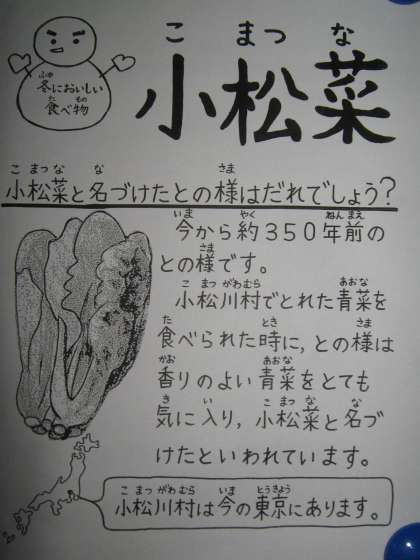 こ まつ な
小松菜
ふゆ
冬においしい
た もの
食べ物
こ まつ な な さま
小松菜と名づけたとの様はだれでしょう?
いま やく ねん まえ
今から約350年前の
さま
との様です。
こ まつ がわ むら あおな
小松川村でとれた青菜を
た とき さま
食べられた時に,との様は
かお あおな
香りのよい青菜をとても
き い こ まつ な な
気に入り,小松菜と名づ
けたといわれています。
こ まつ がわ むら いま とうきょう
小松川村は今の東京にあります。